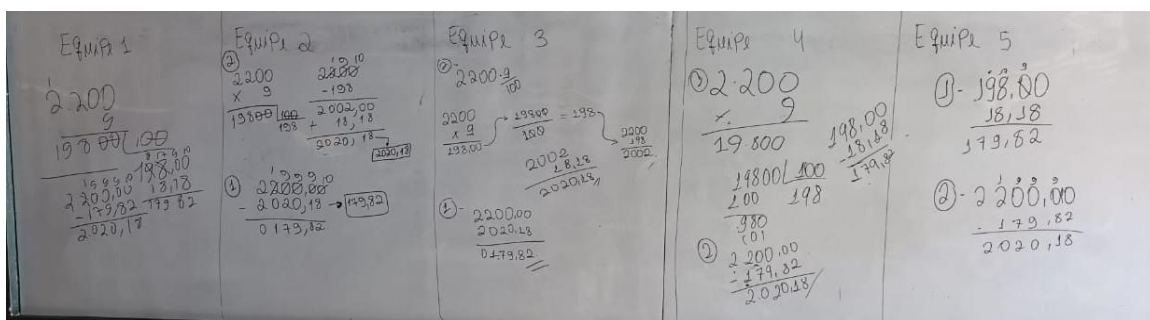 Equipe 1
2.200
9
19800 100
198,00
18,18
179 82
2200,00
-179,82
2020,18
Equipe 2
2
2200
x 9
19800 100
198
2200
-198
2002,00
+ 18,18
2020,18
2020,18
1
2200,00
- 2020,18 → 179,82
0179,82
Equipe 3
2200.9
100
2200
x 9
198,00
19800 = 198
100
2200
198
2002
2002
18,18
2020,18
1-
2200,00
2020,18
0179,82
Equipe 4
2.200
x. 9
19.800
198,00
-18,18
179,82
19800 100
100 198
980
2
2200,00
-179,82
2.020,18
Equipe 5
1- 198,00
18,18
179,82
2- 2200,00
- 179,82
2020,18